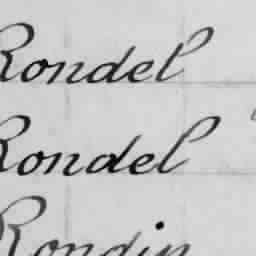 Rondel
Rondel
Rondin